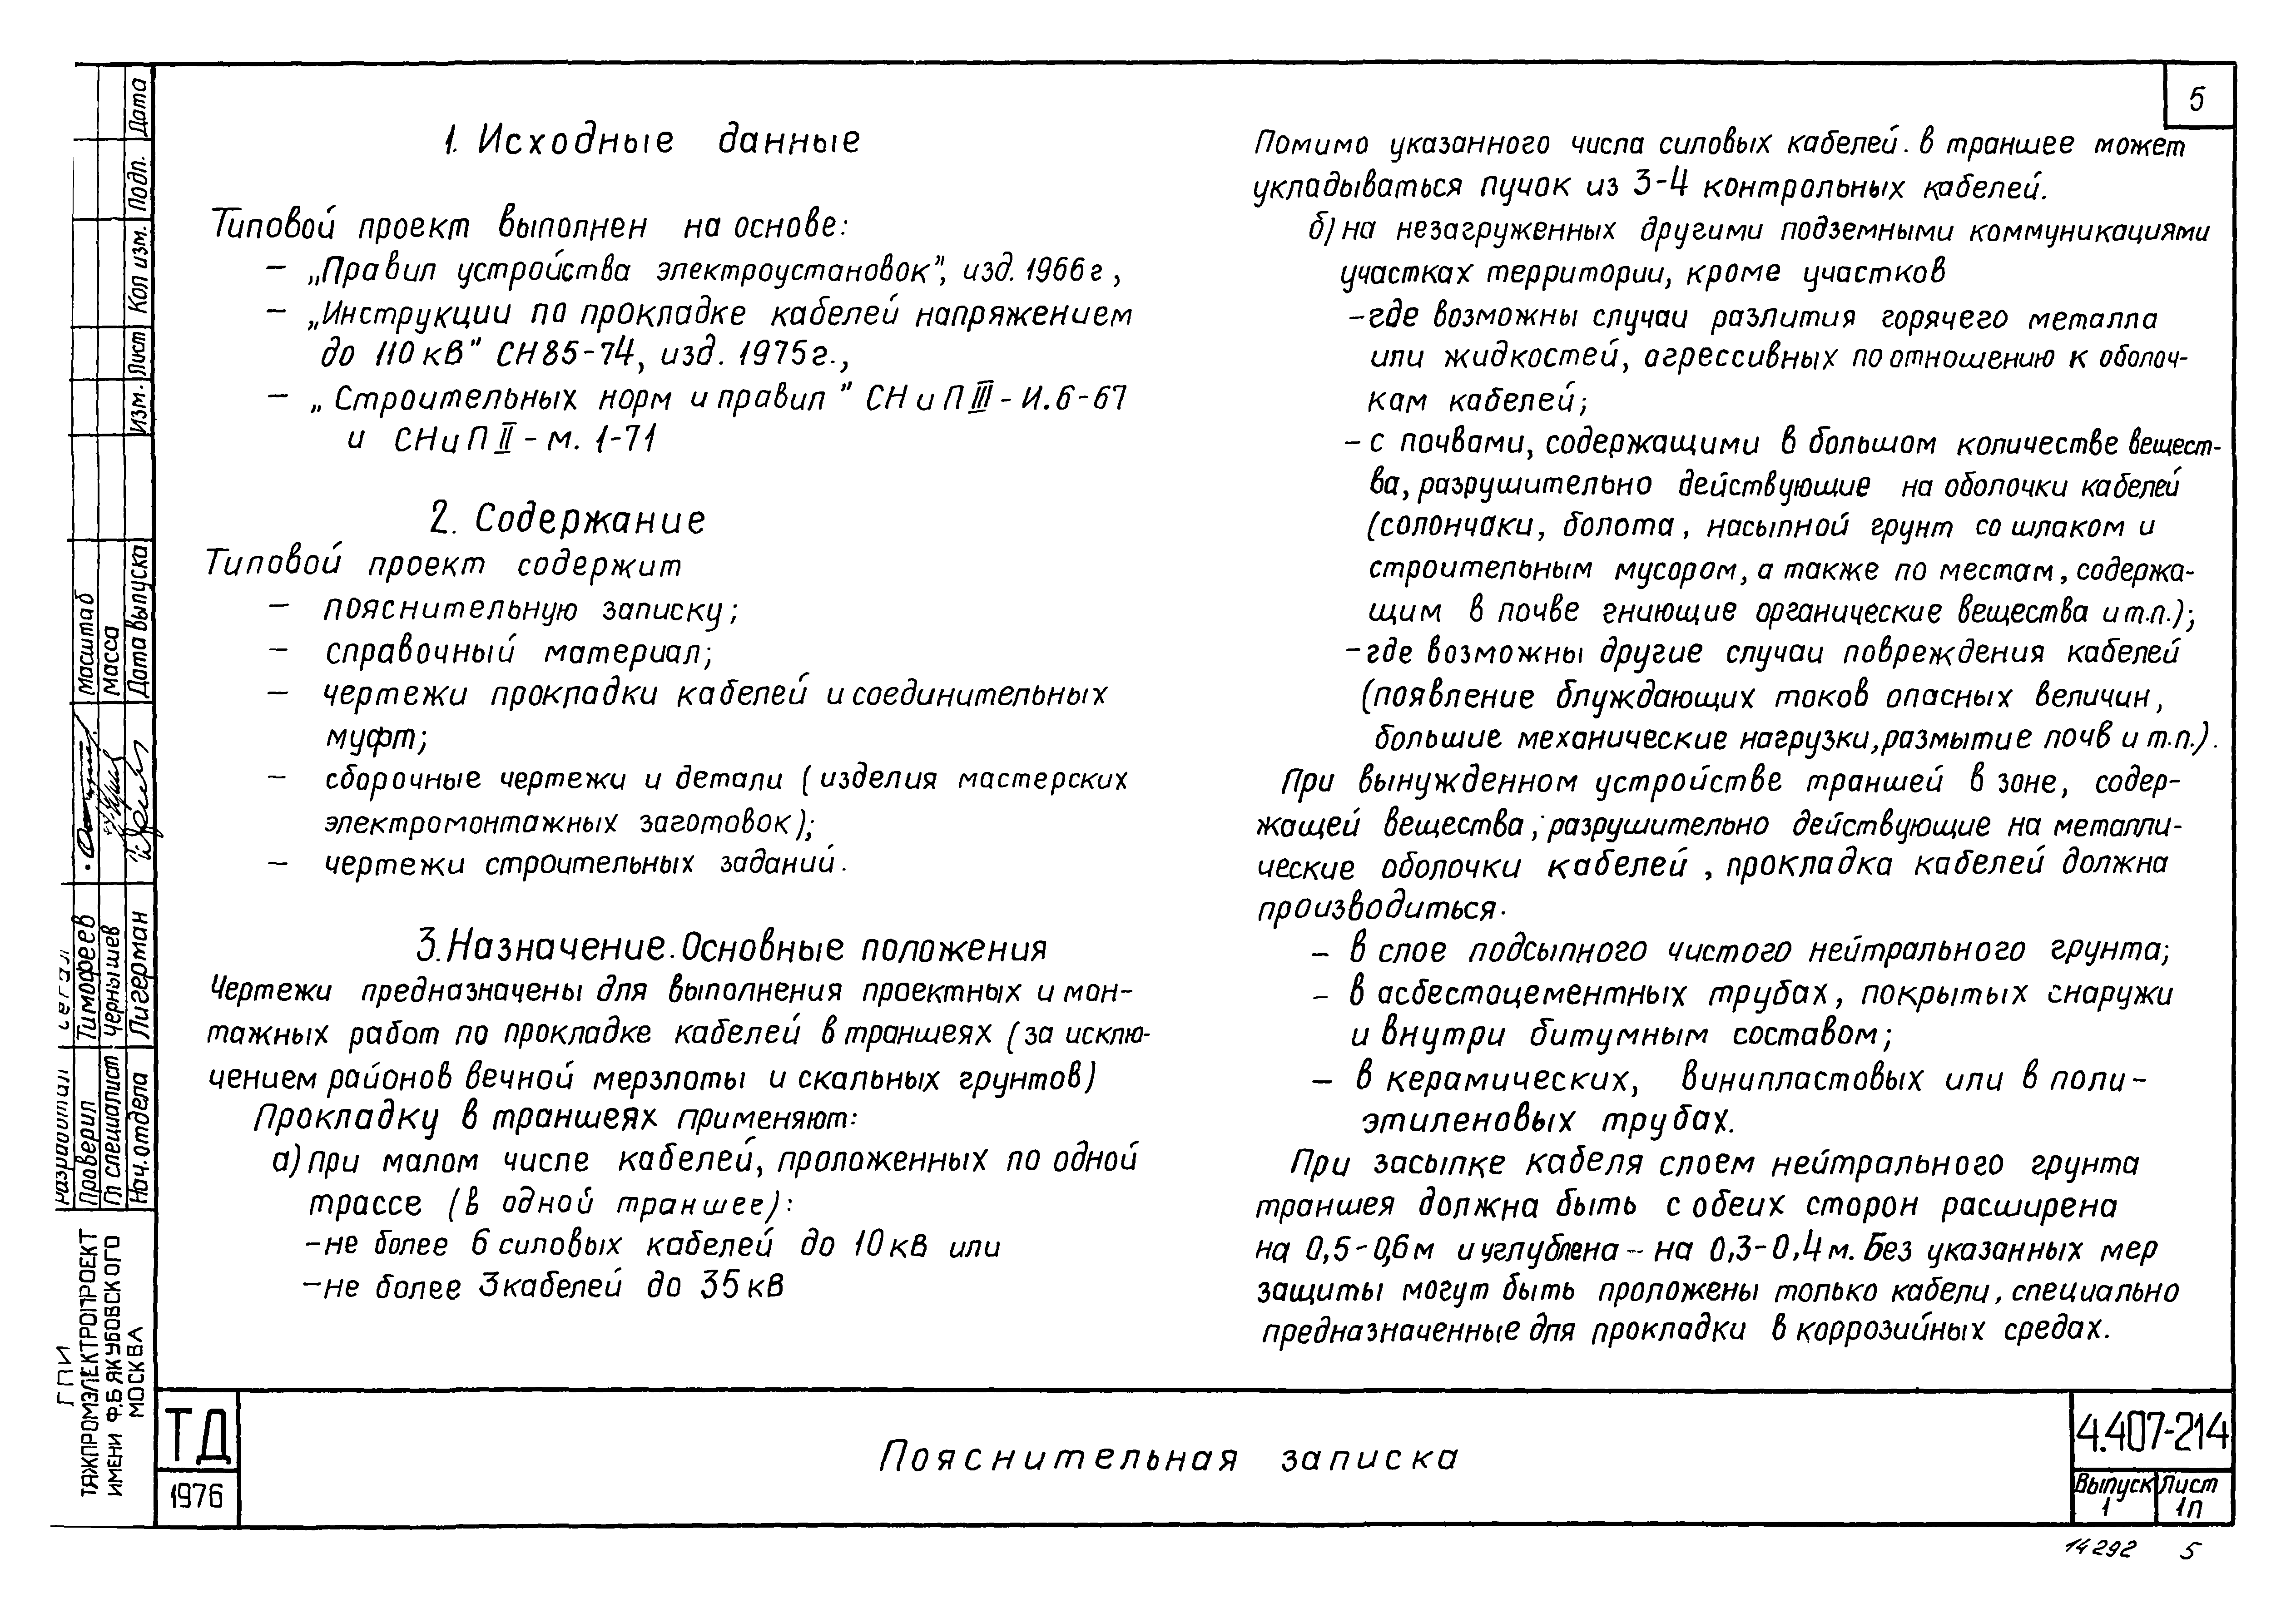 5
1. Исходные данные
Типовой проект выполнен на основе:
– „Правил устройства электроустановок", изд. 1966г,
– „Инструкции по прокладке кабелей напряжением
до 110кВ" СН85-74, изд. 1975г.,
– „Строительных норм и правил" СНиП III-И.6-67
и СНиП II-м. 1-71
2. Содержание
Типовой проект содержит
– пояснительную записку;
– справочный материал;
– чертежи прокладки кабелей и соединительных
муфт;
– сборочные чертежи и детали (изделия мастерских
электромонтажных заготовок);
– чертежи строительных заданий.
3. Назначение. Основные положения
Чертежи предназначены для выполнения проектных и мон-
тажных работ по прокладке кабелей в траншеях (за исклю-
чением районов вечной мерзлоты и скальных грунтов)
Прокладку в траншеях применяют:
а) при малом числе кабелей, проложенных по одной
трассе (в одной траншее):
– не более 6 силовых кабелей до 10кВ или
– не более 3 кабелей до 35кВ
Помимо указанного числа силовых кабелей. в траншее может
укладываться пучок из 3-4 контрольных кабелей.
б) на незагруженных другими подземными коммуникациями
участках территории, кроме участков
– где возможны случаи разлития горячего металла
или жидкостей, агрессивных по отношению к оболоч-
кам кабелей;
– с почвами, содержащими в большом количестве вещест-
ва, разрушительно действующие на оболочки кабелей
(солончаки, болота, насыпной грунт со шлаком и
строительным мусором, а также по местам, содержа-
щим в почве гниющие органические вещества и т.п.);
– где возможны другие случаи повреждения кабелей
(появление блуждающих токов опасных величин,
большие механические нагрузки, размытие почв и т.п.).
При вынужденном устройстве траншей в зоне, содер-
жащей вещества, разрушительно действующие на металли-
ческие оболочки кабелей, прокладка кабелей должна
производиться.
– в слое подсыпного чистого нейтрального грунта;
– в асбестоцементных трубах, покрытых снаружи
и внутри битумным составом;
– в керамических, винипластовых или в поли-
этиленовых трубах.
При засыпке кабеля слоем нейтрального грунта
траншея должна быть с обеих сторон расширена
на 0,5-0,6м и углублена – на 0,3-0,4м. Без указанных мер
защиты могут быть проложены только кабели, специально
предназначенные для прокладки в коррозийных средах.
Изм. Лист Кол изм. Подп. Дата
Масштаб
Масса
Дата выпуска
Разработал
Проверил Тимофеев
Гл специалист Чернышев
Нач. отдела Лигерман
ГПИ
ТЯЖПРОМЭЛЕКТРОПРОЕКТ
ИМЕНИ Ф.Б.ЯКУБОВСКОГО
МОСКВА
ТД
1976
Пояснительная записка
4.407-214
Выпуск Лист
1 1п
14292 5